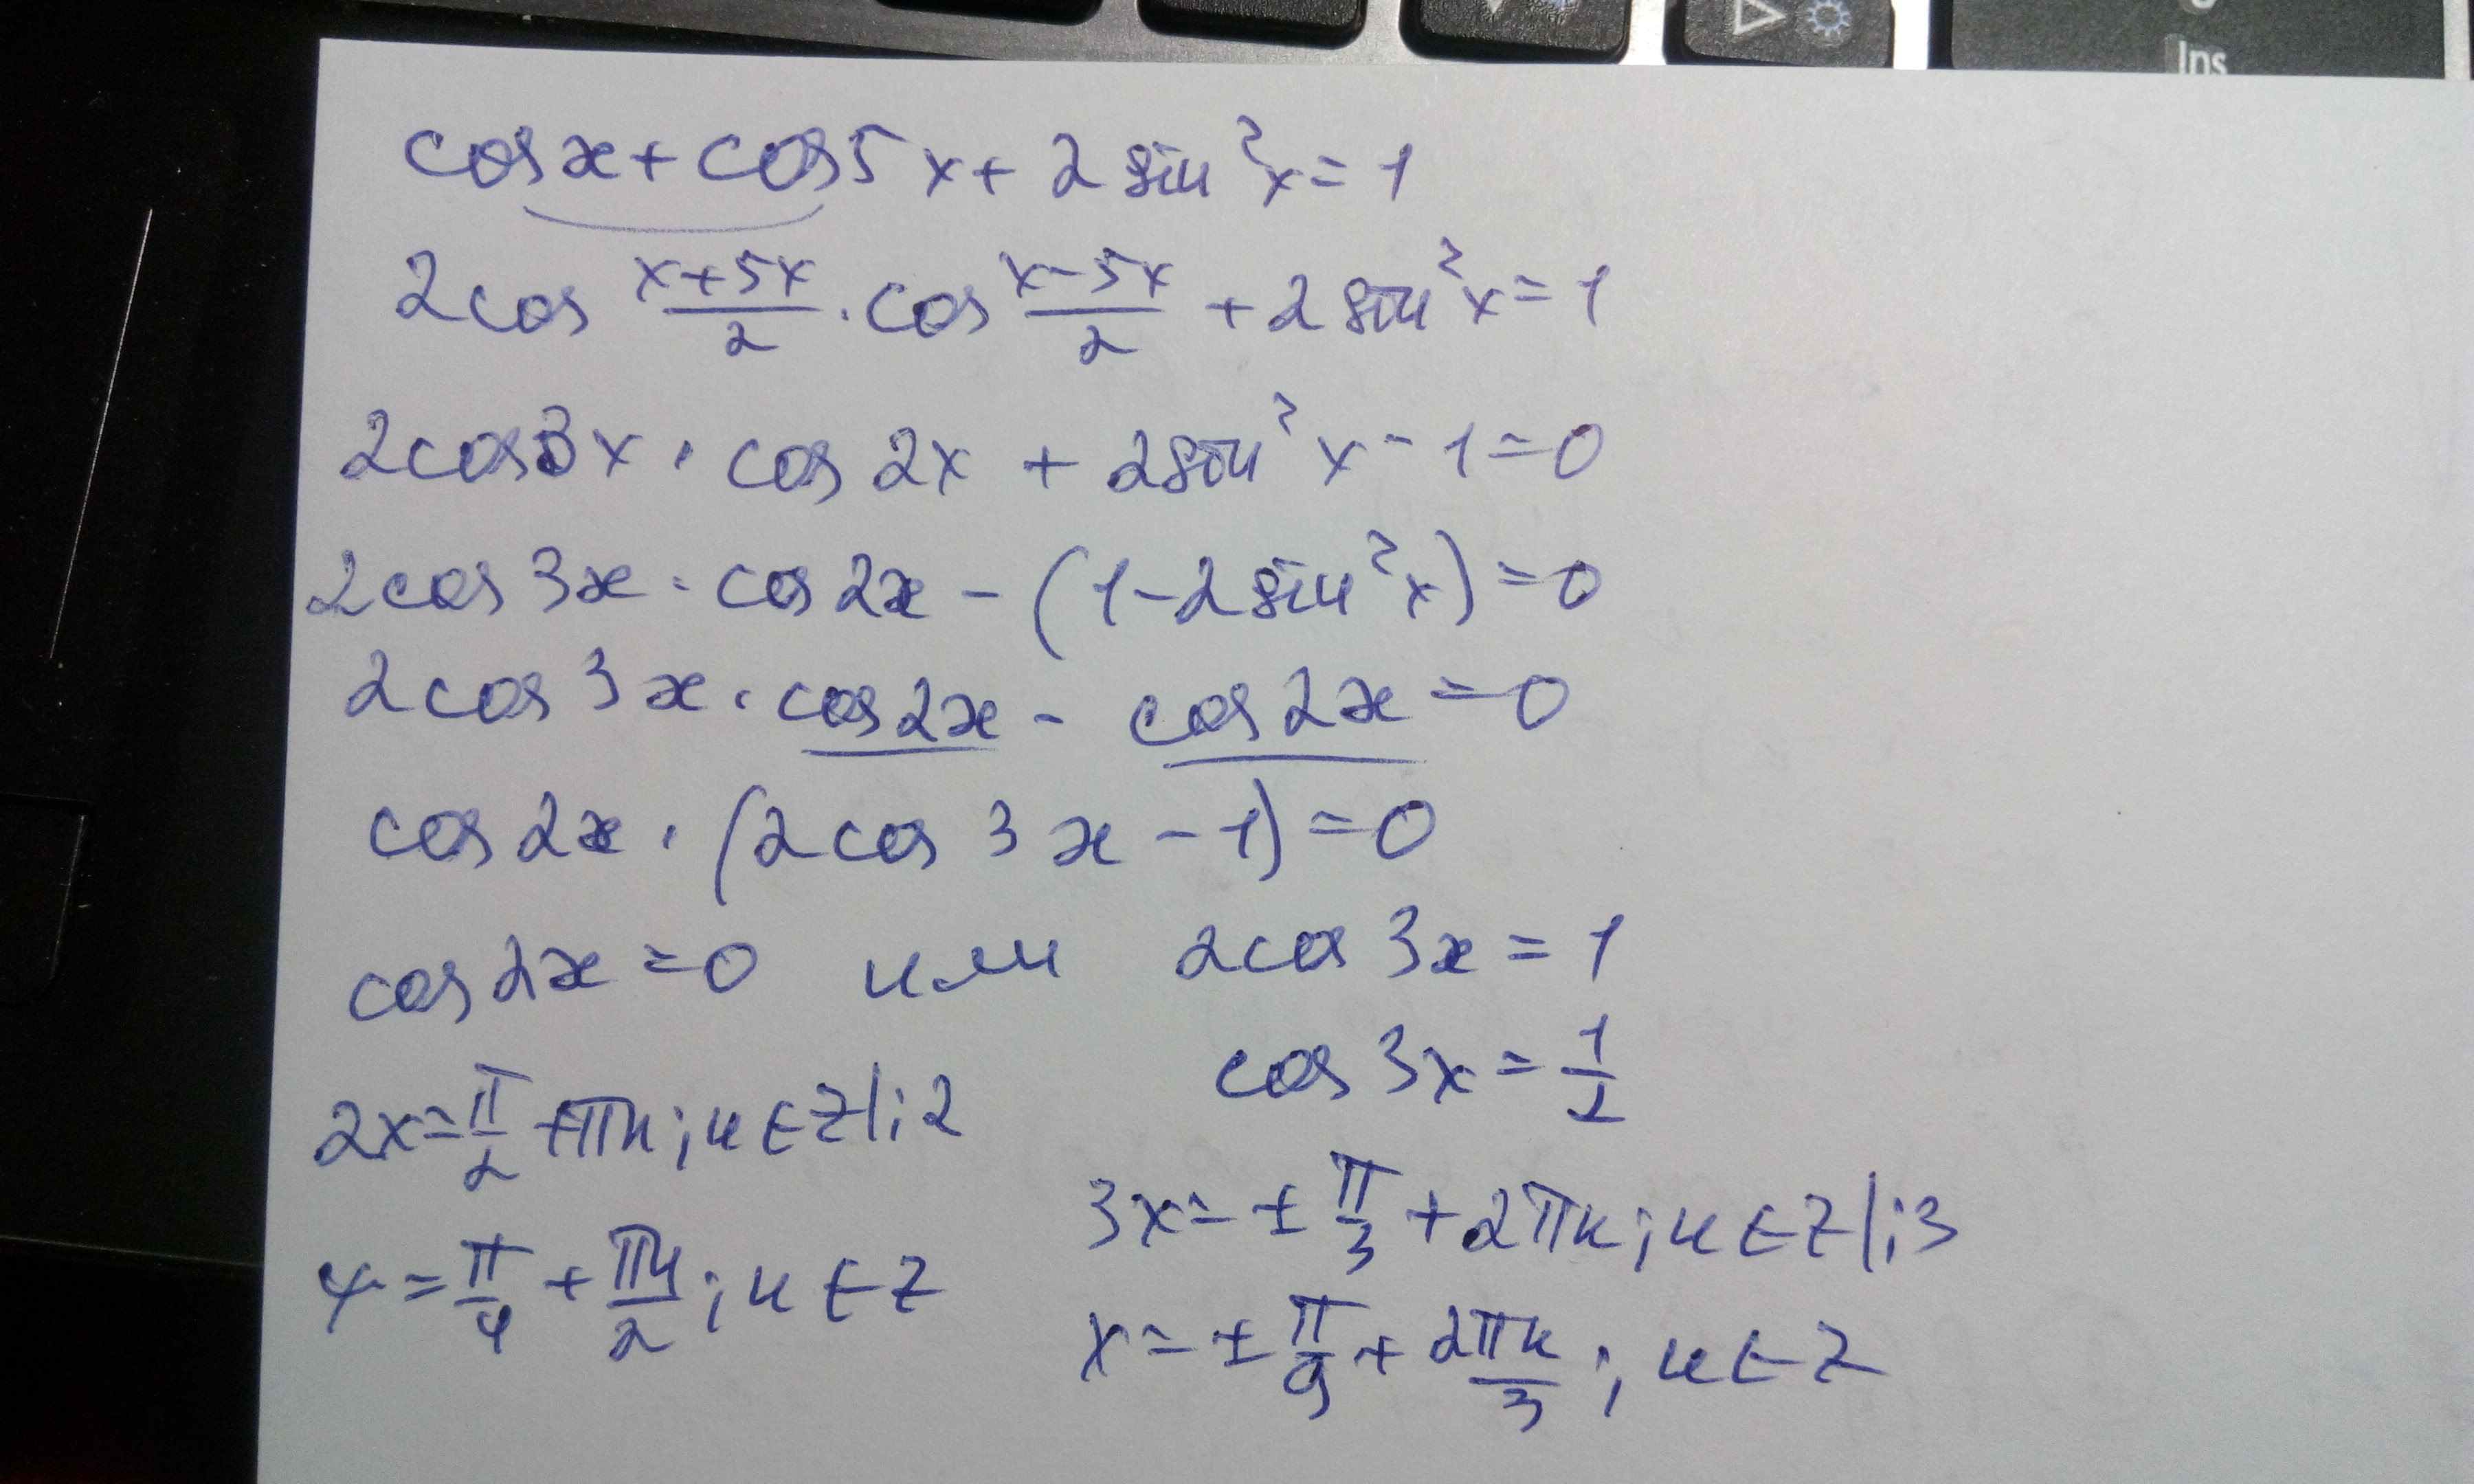 Ins
cos x + cos 5x + 2 sin²x = 1
2cos (x+5x)/2 · cos (x-5x)/2 + 2 sin²x = 1
2cos3x · cos 2x + 2sin²x - 1 = 0
2cos 3x · cos 2x - (1 - 2 sin²x) = 0
2cos 3x · cos 2x - cos 2x = 0
cos 2x · (2 cos 3x - 1) = 0
cos 2x = 0 или 2cos 3x = 1
cos 3x = 1/2
2x = π/2 + πn; n ∈ Z |:2
3x = ± π/3 + 2πn; n ∈ Z |:3
x = π/4 + πn/2; n ∈ Z
x = ± π/9 + 2πn/3; n ∈ Z